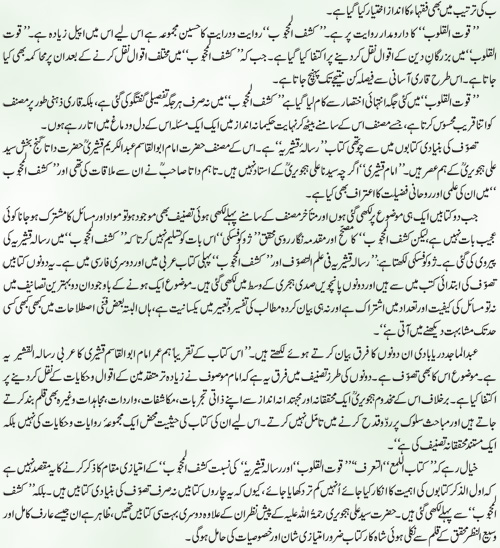 ب کی ترتیب میں بھی فقہاء کا انداز اختیار کیا گیا ہے۔
’’قوت القلوب‘‘ کا دارومدار روایت پر ہے۔ ’’کشف المحجوب‘‘ روایت و درایت کا حسین مجموعہ ہے اس لیے اس میں اپیل زیادہ ہے۔ ’’قوت
القلوب‘‘ میں بزرگانِ دین کے اقوال نقل کر دینے پر اکتفا کیا گیا ہے۔ جب کہ ’’کشف المحجوب‘‘ میں مختلف اقوال نقل کرنے کے بعد ان پر محاکمہ بھی کیا
جاتا ہے۔ اس طرح قاری آسانی سے فیصلہ کن نتیجے تک پہنچ جاتا ہے۔
’’قوت القلوب‘‘ میں کئی جگہ انتہائی اختصار سے کام لیا گیا ہے ’’کشف المحجوب‘‘ میں نہ صرف ہر جگہ تفصیلی گفتگو کی گئی ہے، بلکہ قاری ذہنی طور پر مصنف
کو اتنا قریب محسوس کرتا ہے، جیسے مصنف اس کے سامنے بیٹھ کر نہایت حکیمانہ انداز میں ایک ایک مسئلہ اس کے دل و دماغ میں اتار رہے ہوں۔
تصوّف کی بنیادی کتابوں میں سے چوتھی کتاب ’’رسالۂ قشیریہ‘‘ ہے۔ اس کے مصنف حضرت امام ابوالقاسم عبدالکریم قشیریؒ حضرت داتا گنج بخش سید
علی ہجویریؒ کے ہم عصر ہیں۔ ’’امام قشیریؒ‘‘ اگرچہ سیدنا علی ہجویریؒ کے استاد نہیں ہیں۔ تاہم داتا صاحبؒ نے ان سے ملاقات کی تھی اور ’’کشف المحجوب
‘‘ میں ان کی علمی اور روحانی فضیلت کا اعتراف بھی کیا ہے۔
جب دو کتابیں ایک ہی موضوع پر لکھی گئی ہوں اور متأخر مصنف کے سامنے پہلے لکھی ہوئی تصنیف بھی موجود ہو تو مواد اور مسائل کا مشترک ہو جانا کوئی
عجیب بات نہیں ہے، لیکن کشف المحجوب‘‘ کا مصحّح اور مقدمہ نگار روسی محقق ’’ژوکوفسکی‘‘ اس بات کو تسلیم نہیں کرتا کہ ’’کشف المحجوب‘‘ میں رسالہ قشیریہ کی
پیروی کی گئی ہے۔ ژوکوفسکی لکھتا ہے: ’’رسالہ قشیریہ فی علم التصوّف اور ’’کشف المحجوب‘‘ پہلی کتاب عربی میں اور دوسری فارسی میں ہے۔ یہ دونوں کتابیں
تصوف کی ابتدائی کتب میں سے ہیں اور دونوں پانچویں صدی ہجری کے وسط میں لکھی گئی ہیں۔ موضوع ایک ہونے کے باوجود ان دو بہترین تصانیف میں
نہ تو مسائل کی کیفیت اور تعداد میں اشتراک ہے اور نہ ہی بیان کردہ مطالب کی تفسیر و تعبیر میں یکسانیت ہے، ہاں البتہ بعض فنی اصطلاحات میں کبھی کبھی کسی
حد تک مشابہت دیکھنے میں آتی ہے‘‘۔
عبدالماجد دریابادی ان دونوں کا فرق بیان کرتے ہوئے لکھتے ہیں۔ ’’اس کتاب کے تقریباً ہم عمر امام ابوالقاسم قشیری کا عربی رسالہ القشیریہ
ہے۔ موضوع اس کا بھی تصوّف ہے۔ دونوں کی طرزِ تصنیف میں فرق یہ ہے کہ امام موصوف نے زیادہ تر متقدمین کے اقوال و حکایات کے نقل کر دینے پر
اکتفا کیا ہے۔ برخلاف اس کے مخدوم ہجویریؒ ایک محققانہ اور مجتہدانہ انداز سے اپنے ذاتی تجربات، مکاشفات، واردات، مجاہدات وغیرہ بھی قلم بند کرتے
جاتے ہیں اور مباحث سلوک پر ردّ و قدح کرنے میں تامل نہیں کرتے۔ اس لیے ان کی کتاب کی حیثیت محض ایک مجموعہ روایات و حکایات کی نہیں بلکہ
ایک مستند محققانہ تصنیف کی ہے‘‘۔
خیال رہے کہ ’’کتاب اللمع‘‘ ’’التعرف‘‘ ’’قوت القلوب‘‘ اور رسالہ قشیریہ‘‘ کی نسبت کشف المحجوب‘‘ کے امتیازی مقام کا ذکر کرنے کا یہ مقصد نہیں ہے
کہ اول الذکر کتابوں کی اہمیت کا انکار کیا جائے یا اُنہیں کم تر دکھایا جائے، کیوں کہ یہ چاروں کتابیں نہ صرف تصوّف کی بنیادی کتابیں ہیں۔ بلکہ ’’کشف
المحجوب‘‘ سے پہلے لکھی گئی ہیں۔ حضرت سید علی ہجویری رحمۃ اللہ علیہ کے پیش نظر ان کے علاوہ دوسری بہت سی کتابیں تھیں، ظاہر ہے ان جیسے عارف کامل اور
وسیع النظر محقق کے قلم سے نکلی ہوئی شاہکار کتاب ضرور امتیازی شان اور خصوصیات کی حامل ہوگی۔